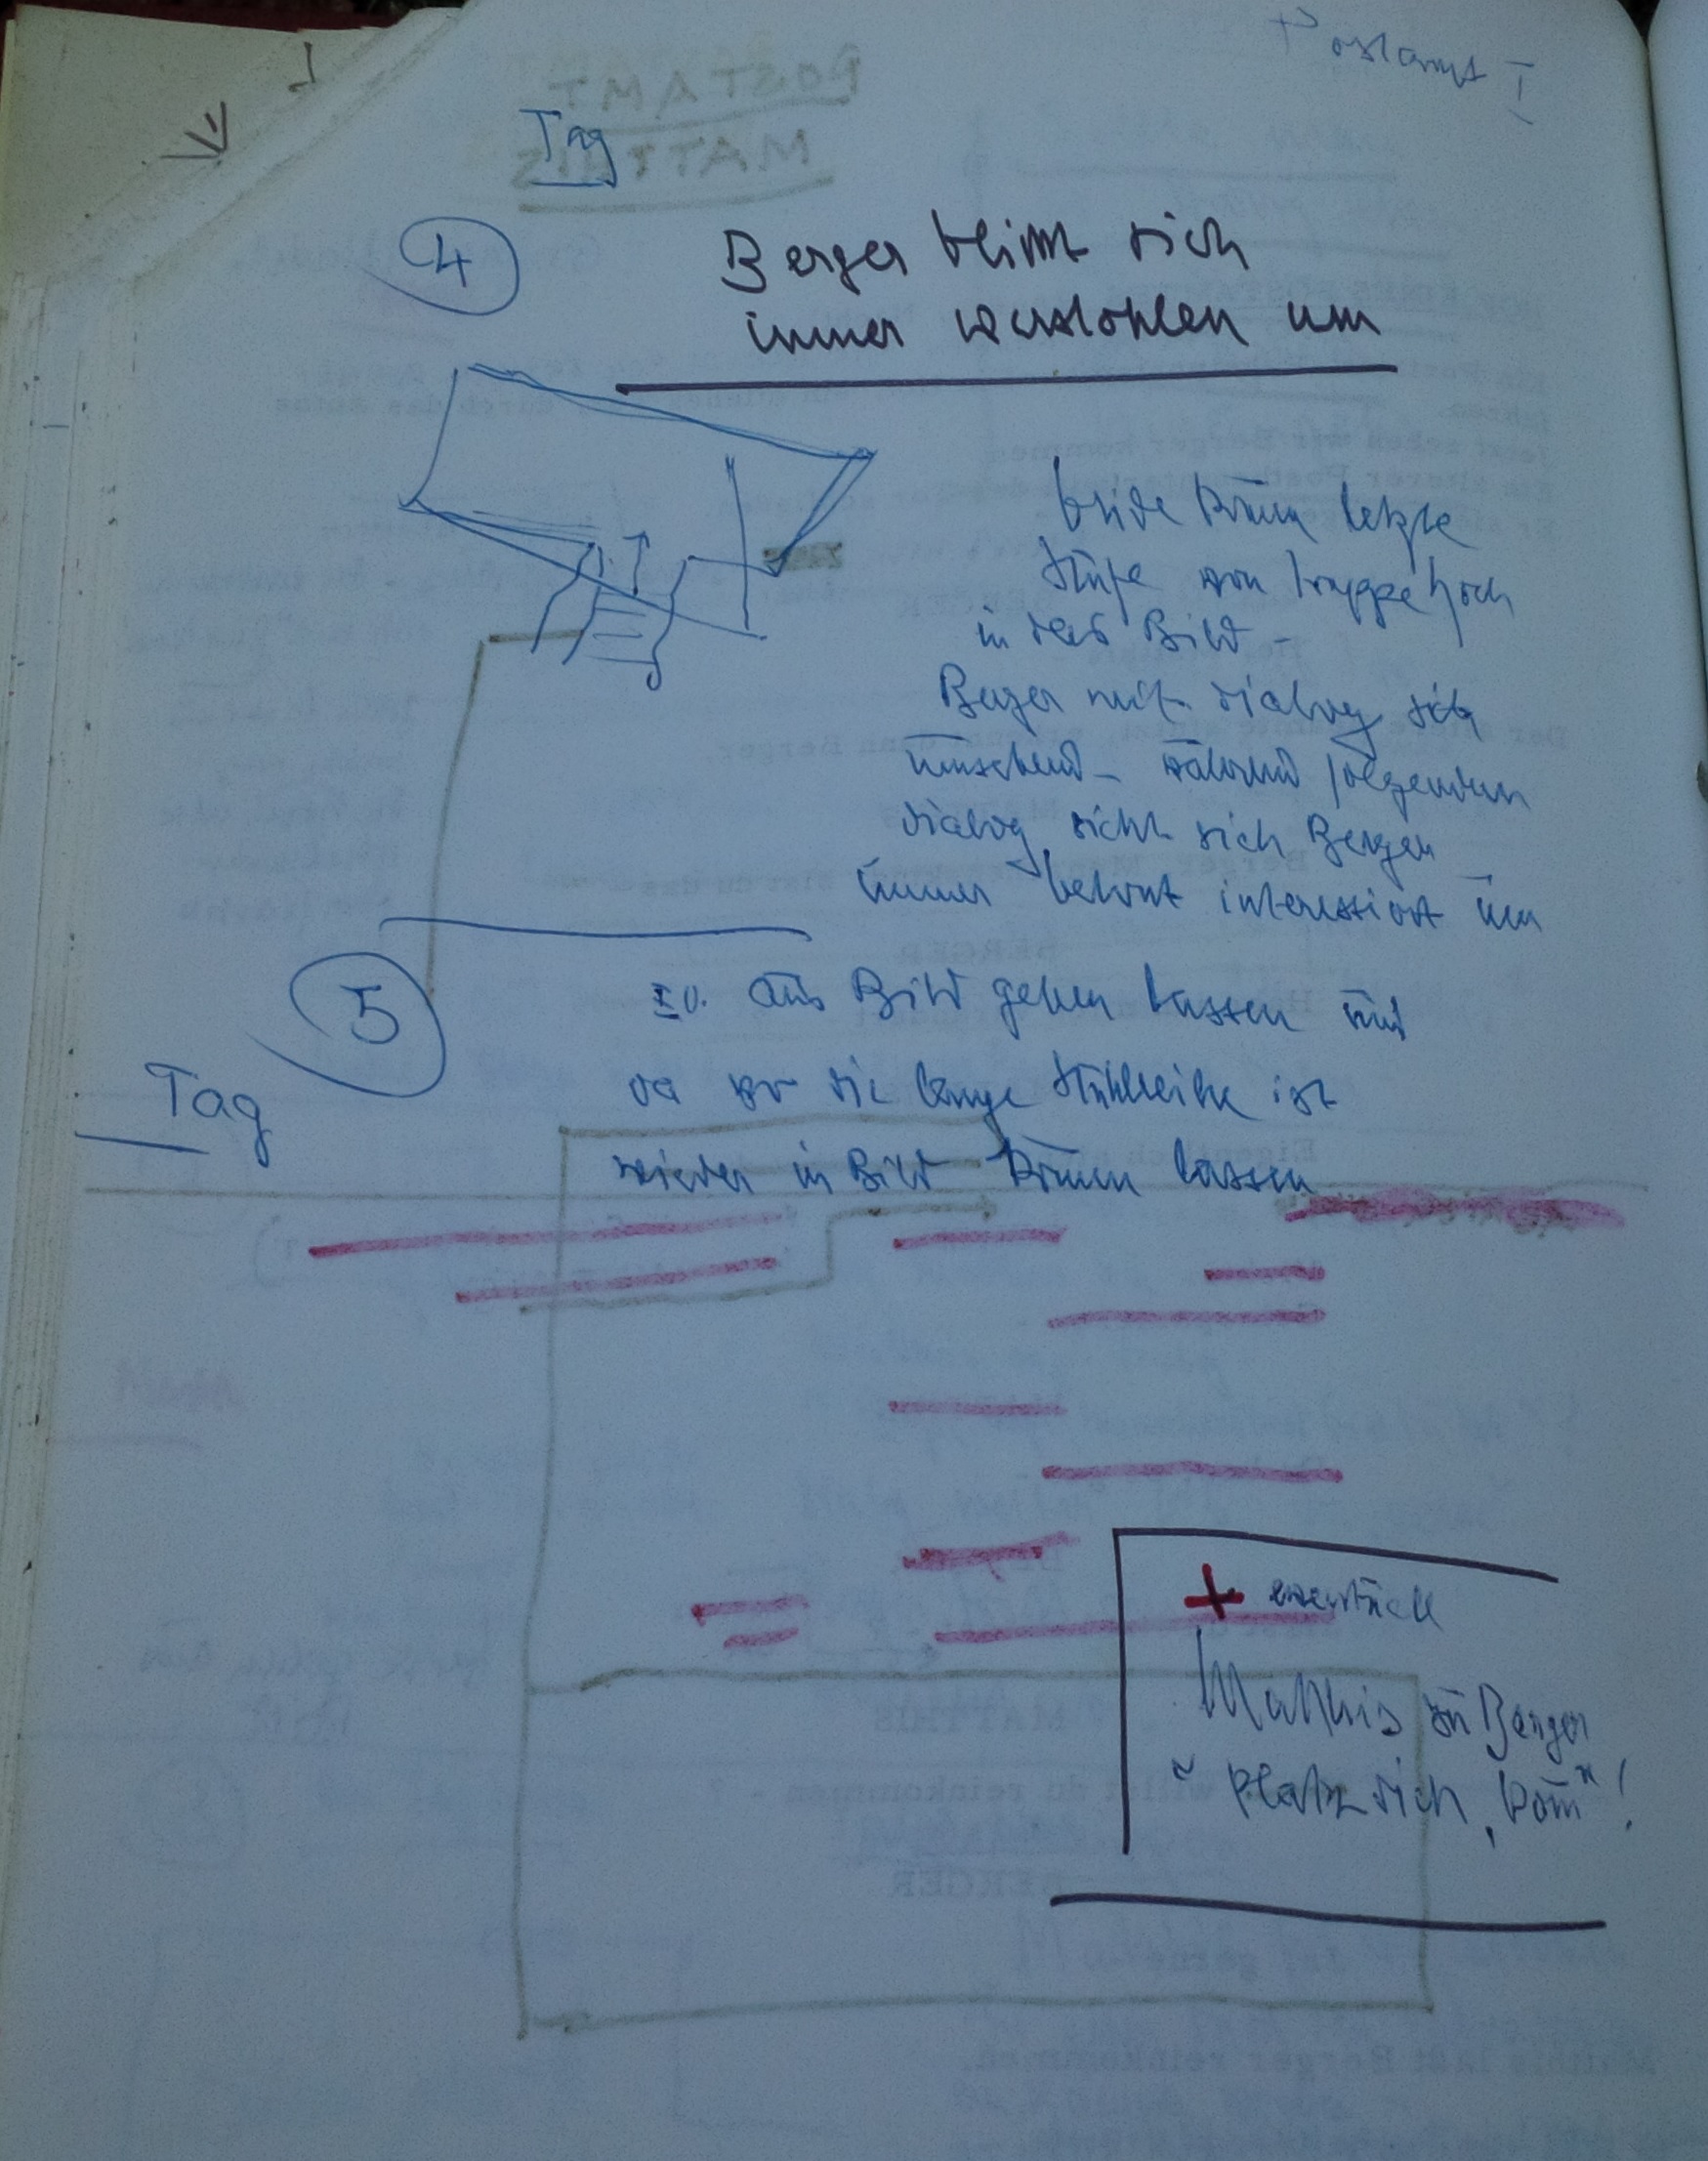 Postamt I
Tag
4
Berger blickt sich
immer verstohlen um
beide komm letzte
Stufe von Treppe hoch
in das Bild -
Berger mit dialog sich
umsehend - während folgenden
dialog sieht sich Berger
immer betont interessiert um
5
aus Bild gehen lassen und
da wo die lange Stuhlreihe ist
Tag
wieder in Bild komm lassen
+ eventuell
Matthis zu Berger
"Platz dich, kom"!